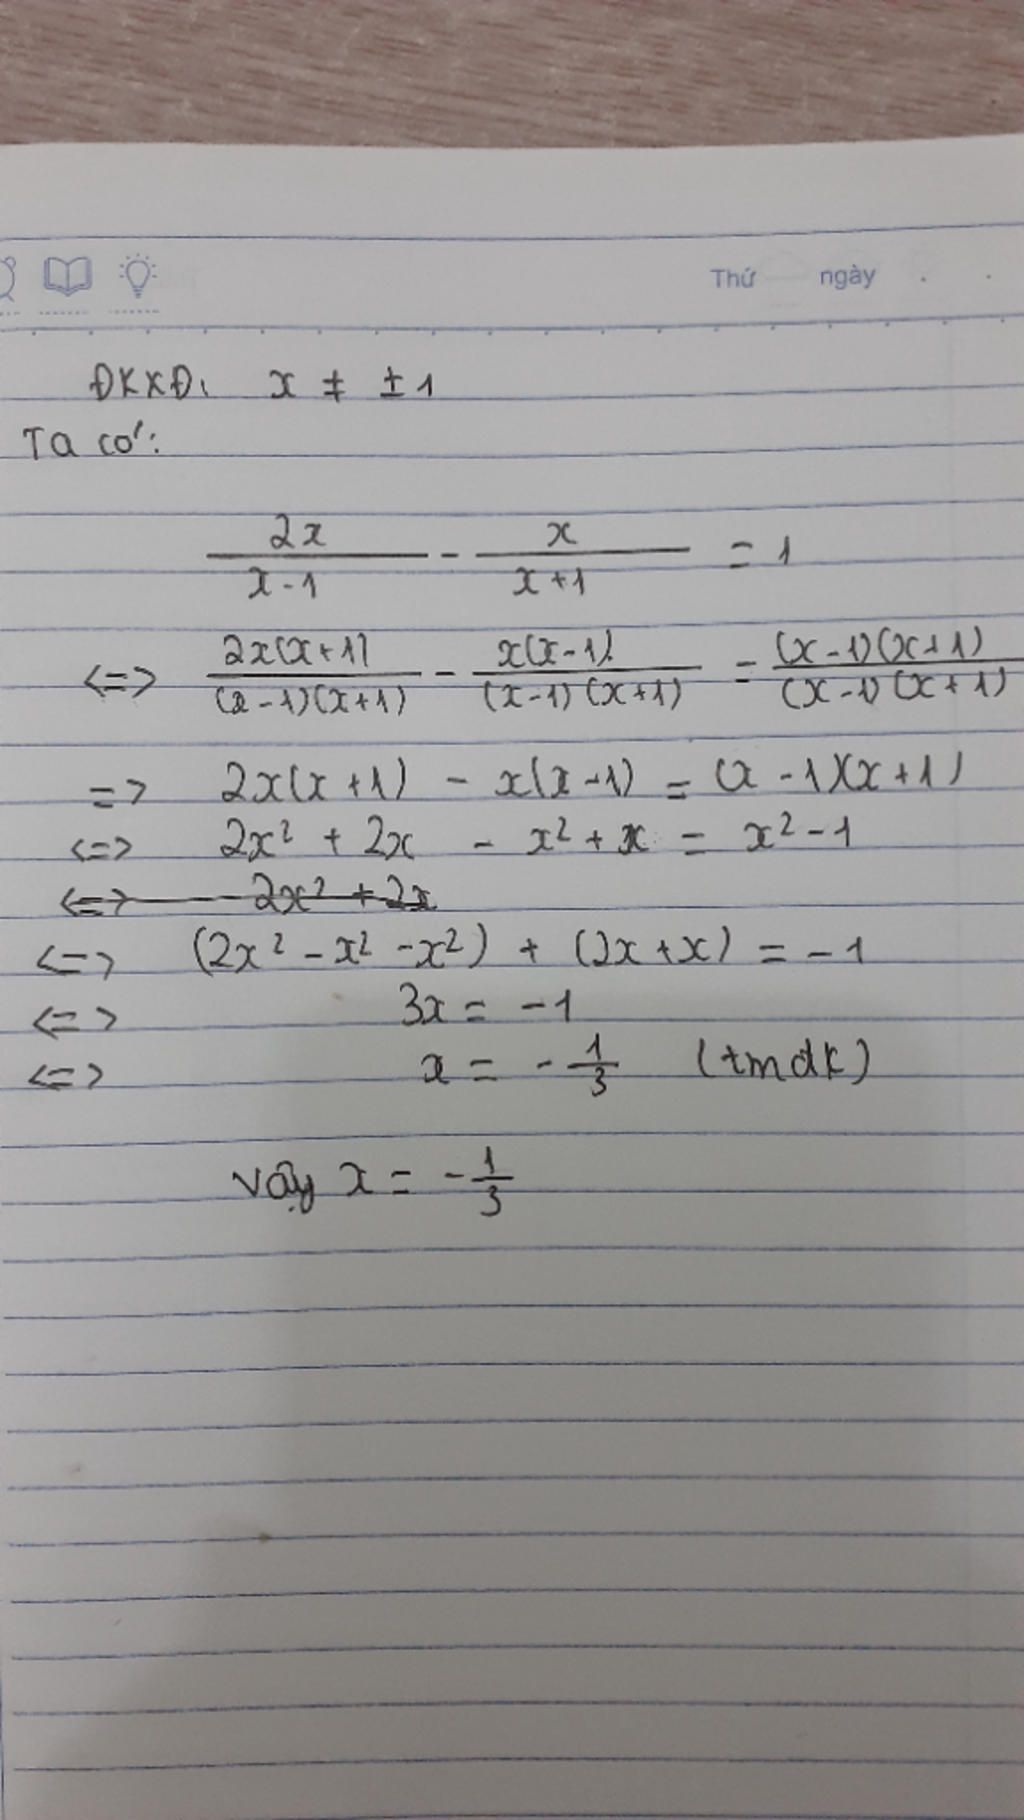 Thứ ngày
ĐKXĐ: x ≠ ± 1
Ta có:
2x/(x-1) - x/(x+1) = 1
<=> 2x(x+1)/((x-1)(x+1)) - x(x-1)/((x-1)(x+1)) = (x-1)(x+1)/((x-1)(x+1))
=> 2x(x+1) - x(x-1) = (x-1)(x+1)
<=> 2x² + 2x - x² + x = x² - 1
<=> 2x² + 2x
<=> (2x² - x² - x²) + (2x + x) = -1
<=> 3x = -1
<=> x = -1/3 (tmdk)
Vậy x = -1/3